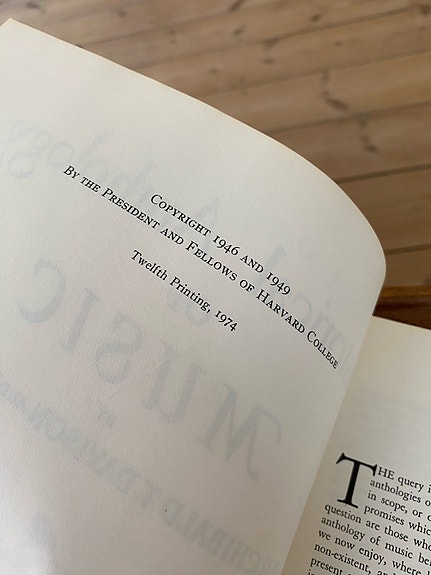 COPYRIGHT 1946 AND 1949
BY THE PRESIDENT AND FELLOWS OF HARVARD COLLEGE
Twelfth Printing, 1974
MUSIC
THE query i
anthologies o
in scope, or
promises which
question are those who
anthology of music be
we now enjoy, where
non-existent, an
present